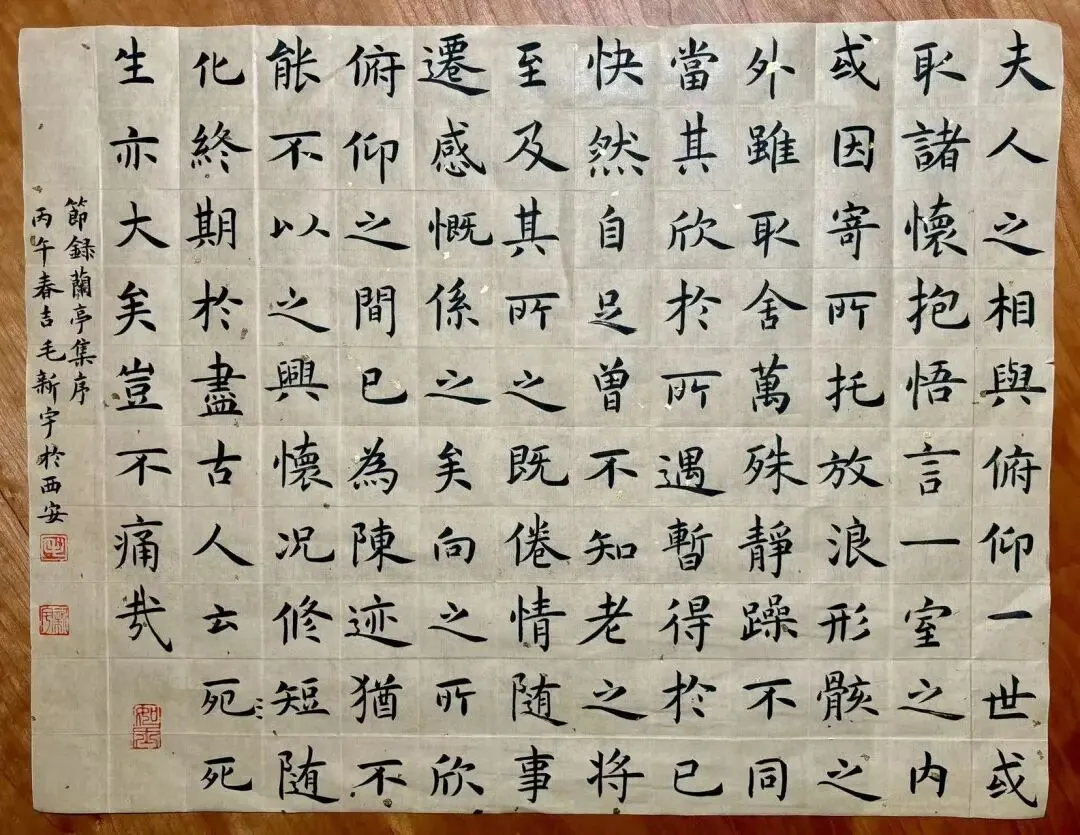 夫人之相與俯仰一世或
取諸懷抱悟言一室之内
或因寄所托放浪形骸之
外雖取舍萬殊靜躁不同
當其欣於所遇暫得於已
快然自足曾不知老之将
至及其所之既倦情随事
遷感慨係之矣向之所欣
俯仰之間已為陳迹猶不
能不以之興懷况修短随
化終期於盡古人云死死
生亦大矣豈不痛哉
節録蘭亭集序
丙午春吉毛新宇於西安